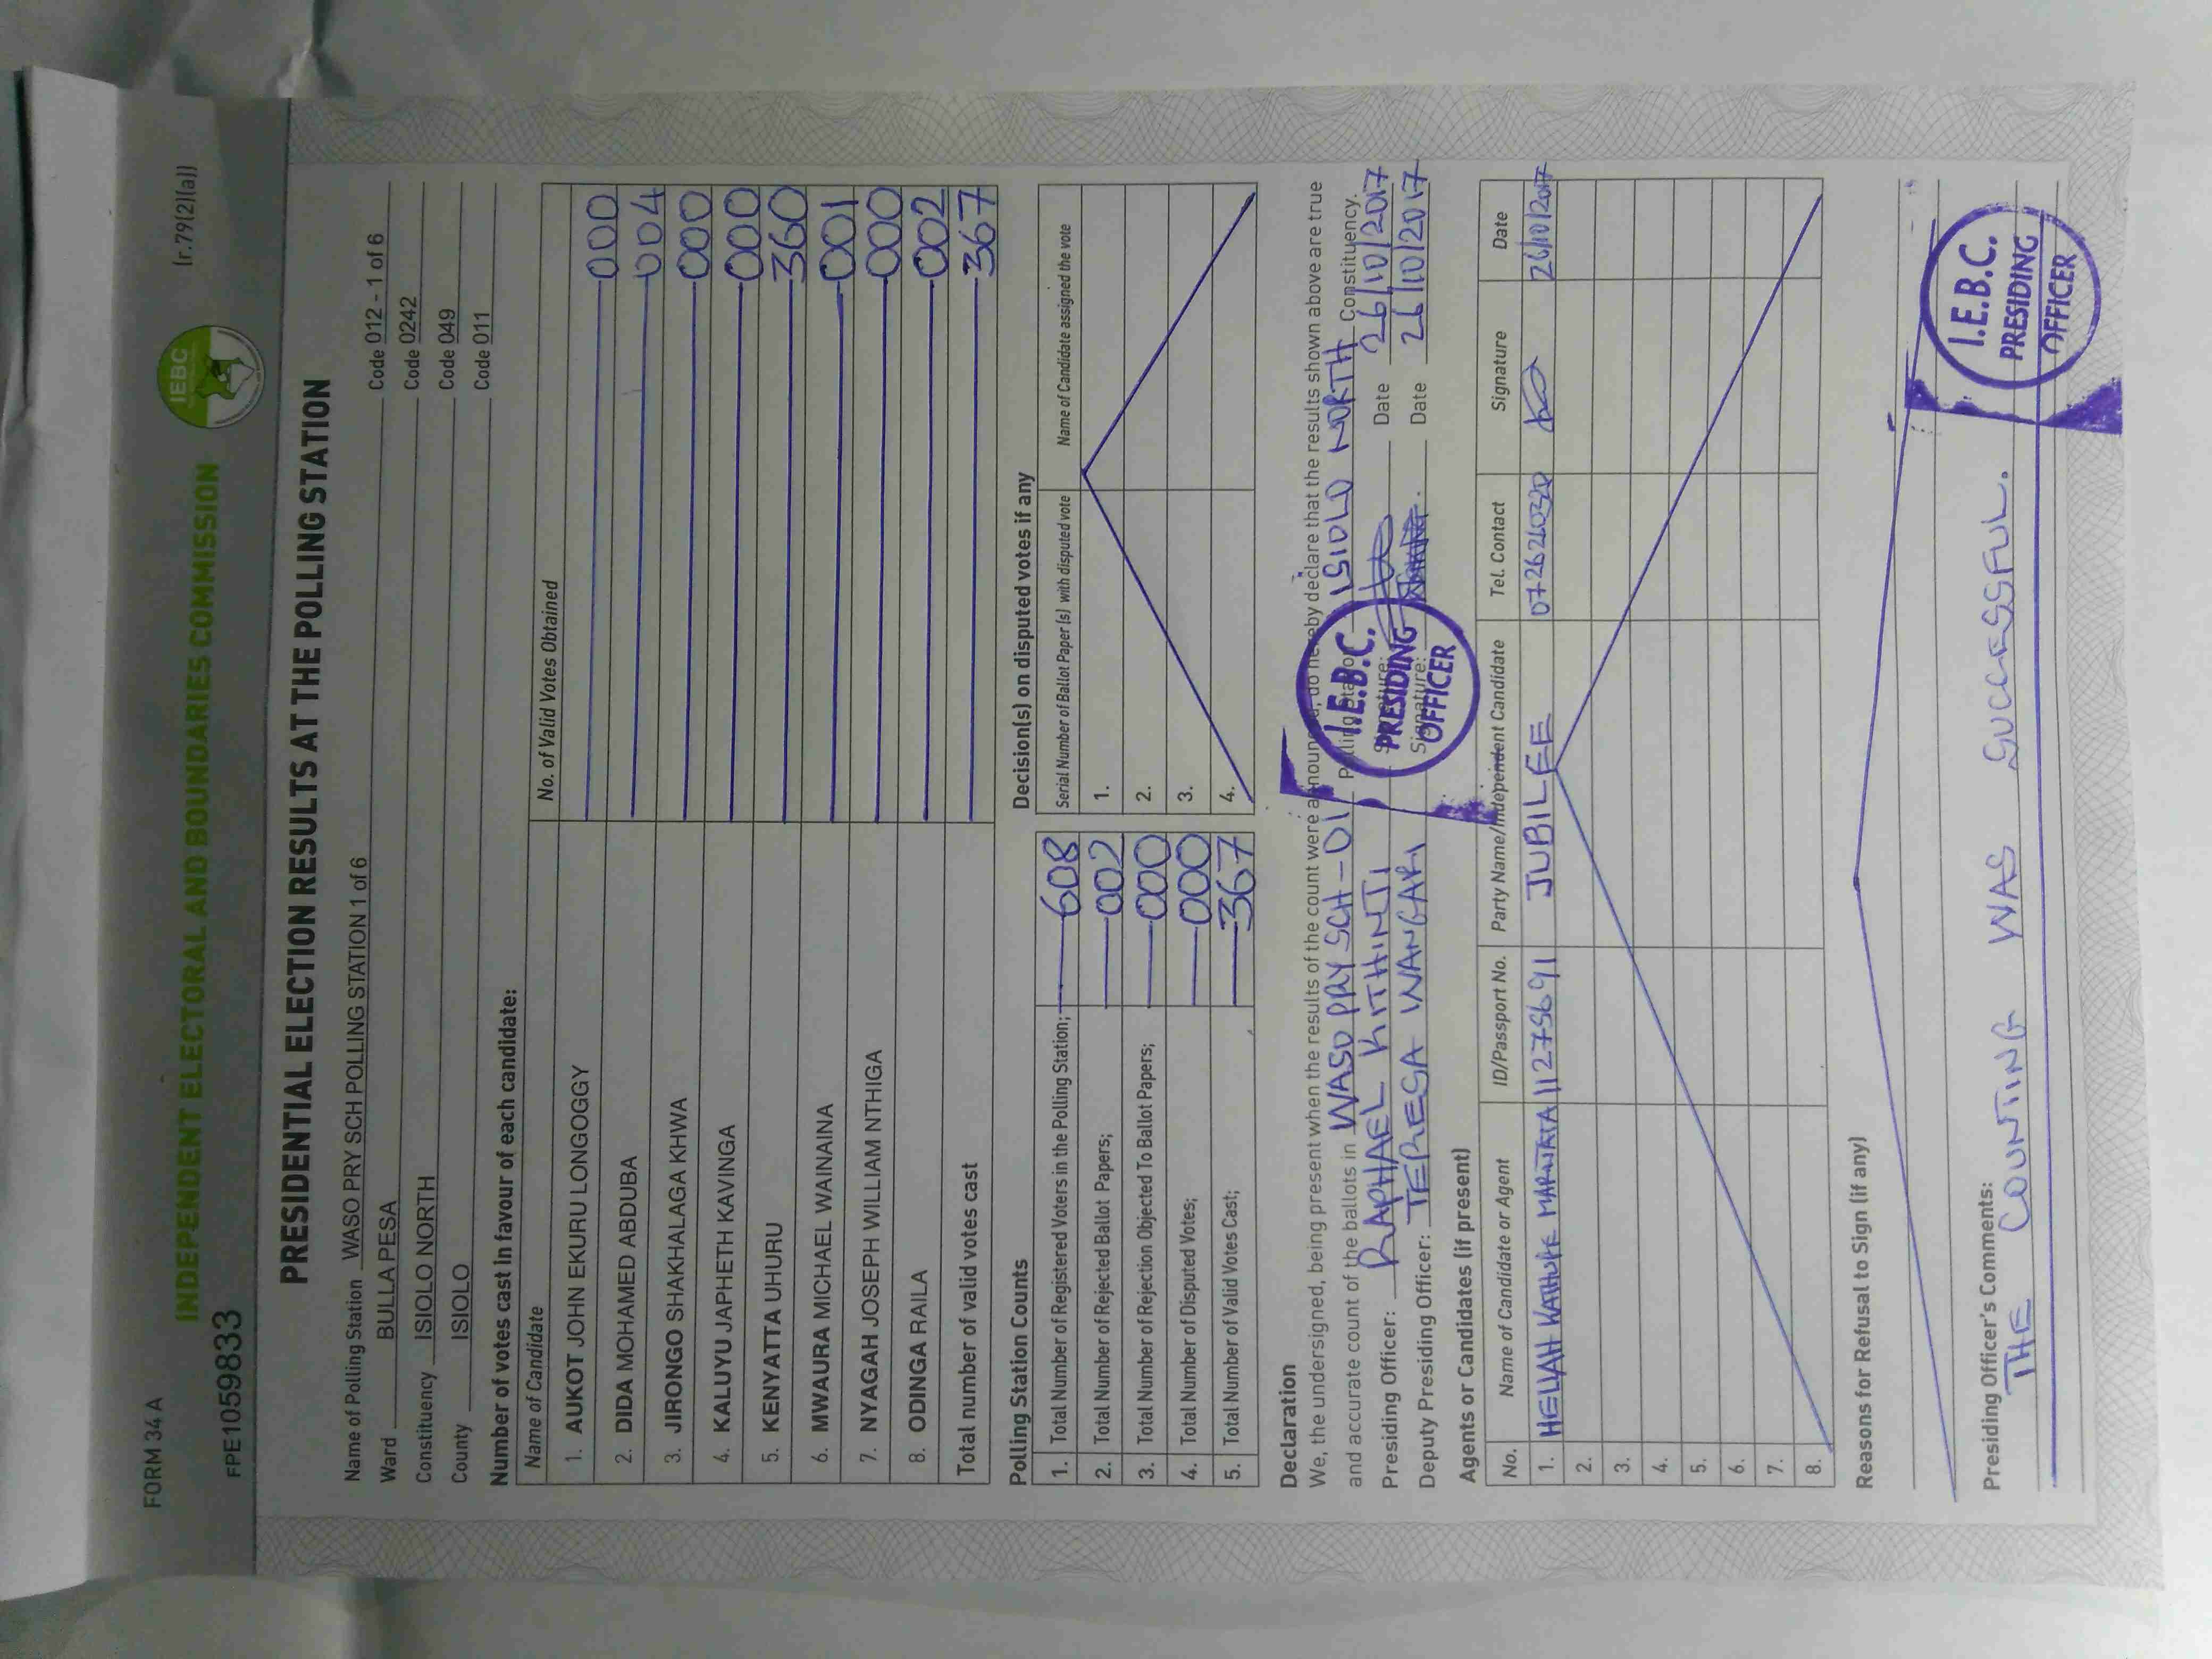 FORM 34 A
(r.79(2)(a))
IEBC
INDEPENDENT ELECTORAL AND BOUNDARIES COMMISSION
FPE1059833
PRESIDENTIAL ELECTION RESULTS AT THE POLLING STATION
Name of Polling Station WASO PRY SCH POLLING STATION 1 of 6 Code 012 - 1 of 6
Ward BULLA PESA Code 0242
Constituency ISIOLO NORTH Code 049
County ISIOLO Code 011
Number of votes cast in favour of each candidate:
Name of Candidate No. of Valid Votes Obtained
1. AUKOT JOHN EKURU LONGOGGY 000
2. DIDA MOHAMED ABDUBA 004
3. JIRONGO SHAKHALAGA KHWA 000
4. KALUYU JAPHETH KAVINGA 000
5. KENYATTA UHURU 360
6. MWAURA MICHAEL WAINAINA 001
7. NYAGAH JOSEPH WILLIAM NTHIGA 000
8. ODINGA RAILA 002
Total number of valid votes cast 367
Polling Station Counts
1. Total Number of Registered Voters in the Polling Station; 608
2. Total Number of Rejected Ballot Papers; 002
3. Total Number of Rejection Objected To Ballot Papers; 000
4. Total Number of Disputed Votes; 000
5. Total Number of Valid Votes Cast; 367
Decision(s) on disputed votes if any
Serial Number of Ballot Paper (s) with disputed vote Name of Candidate assigned the vote
1.
2.
3.
4.
Declaration
We, the undersigned, being present when the results of the count were announced, do hereby declare that the results shown above are true
and accurate count of the ballots in WASO PRY SCH - 01 Polling Station ISIOLO NORTH Constituency.
Presiding Officer: RAPHAEL KITHINTI Signature: Date 26/10/2017
Deputy Presiding Officer: TERESA WANGARI Signature: Date 26/10/2017
I.E.B.C.
PRESIDING
OFFICER
Agents or Candidates (if present)
No. Name of Candidate or Agent ID/Passport No. Party Name/Independent Candidate Tel. Contact Signature Date
1. 11275691 JUBILEE 0726240320 26/10/2017
2.
3.
4.
5.
6.
7.
8.
Reasons for Refusal to Sign (if any)
Presiding Officer's Comments:
THE COUNTING WAS SUCCESSFUL.
I.E.B.C.
PRESIDING
OFFICER